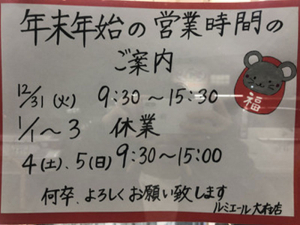 年末年始の営業時間の
ご案内
12/31(火) 9:30〜15:30
1/1〜3 休業
4(土).5(日)9:30〜15:00
何卒、よろしくお願い致します
ルミエール大村店
福